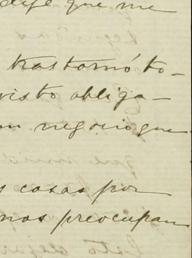 que me
trastornó to-
visto obliga-
negocio que
cosas por
nos preocupan